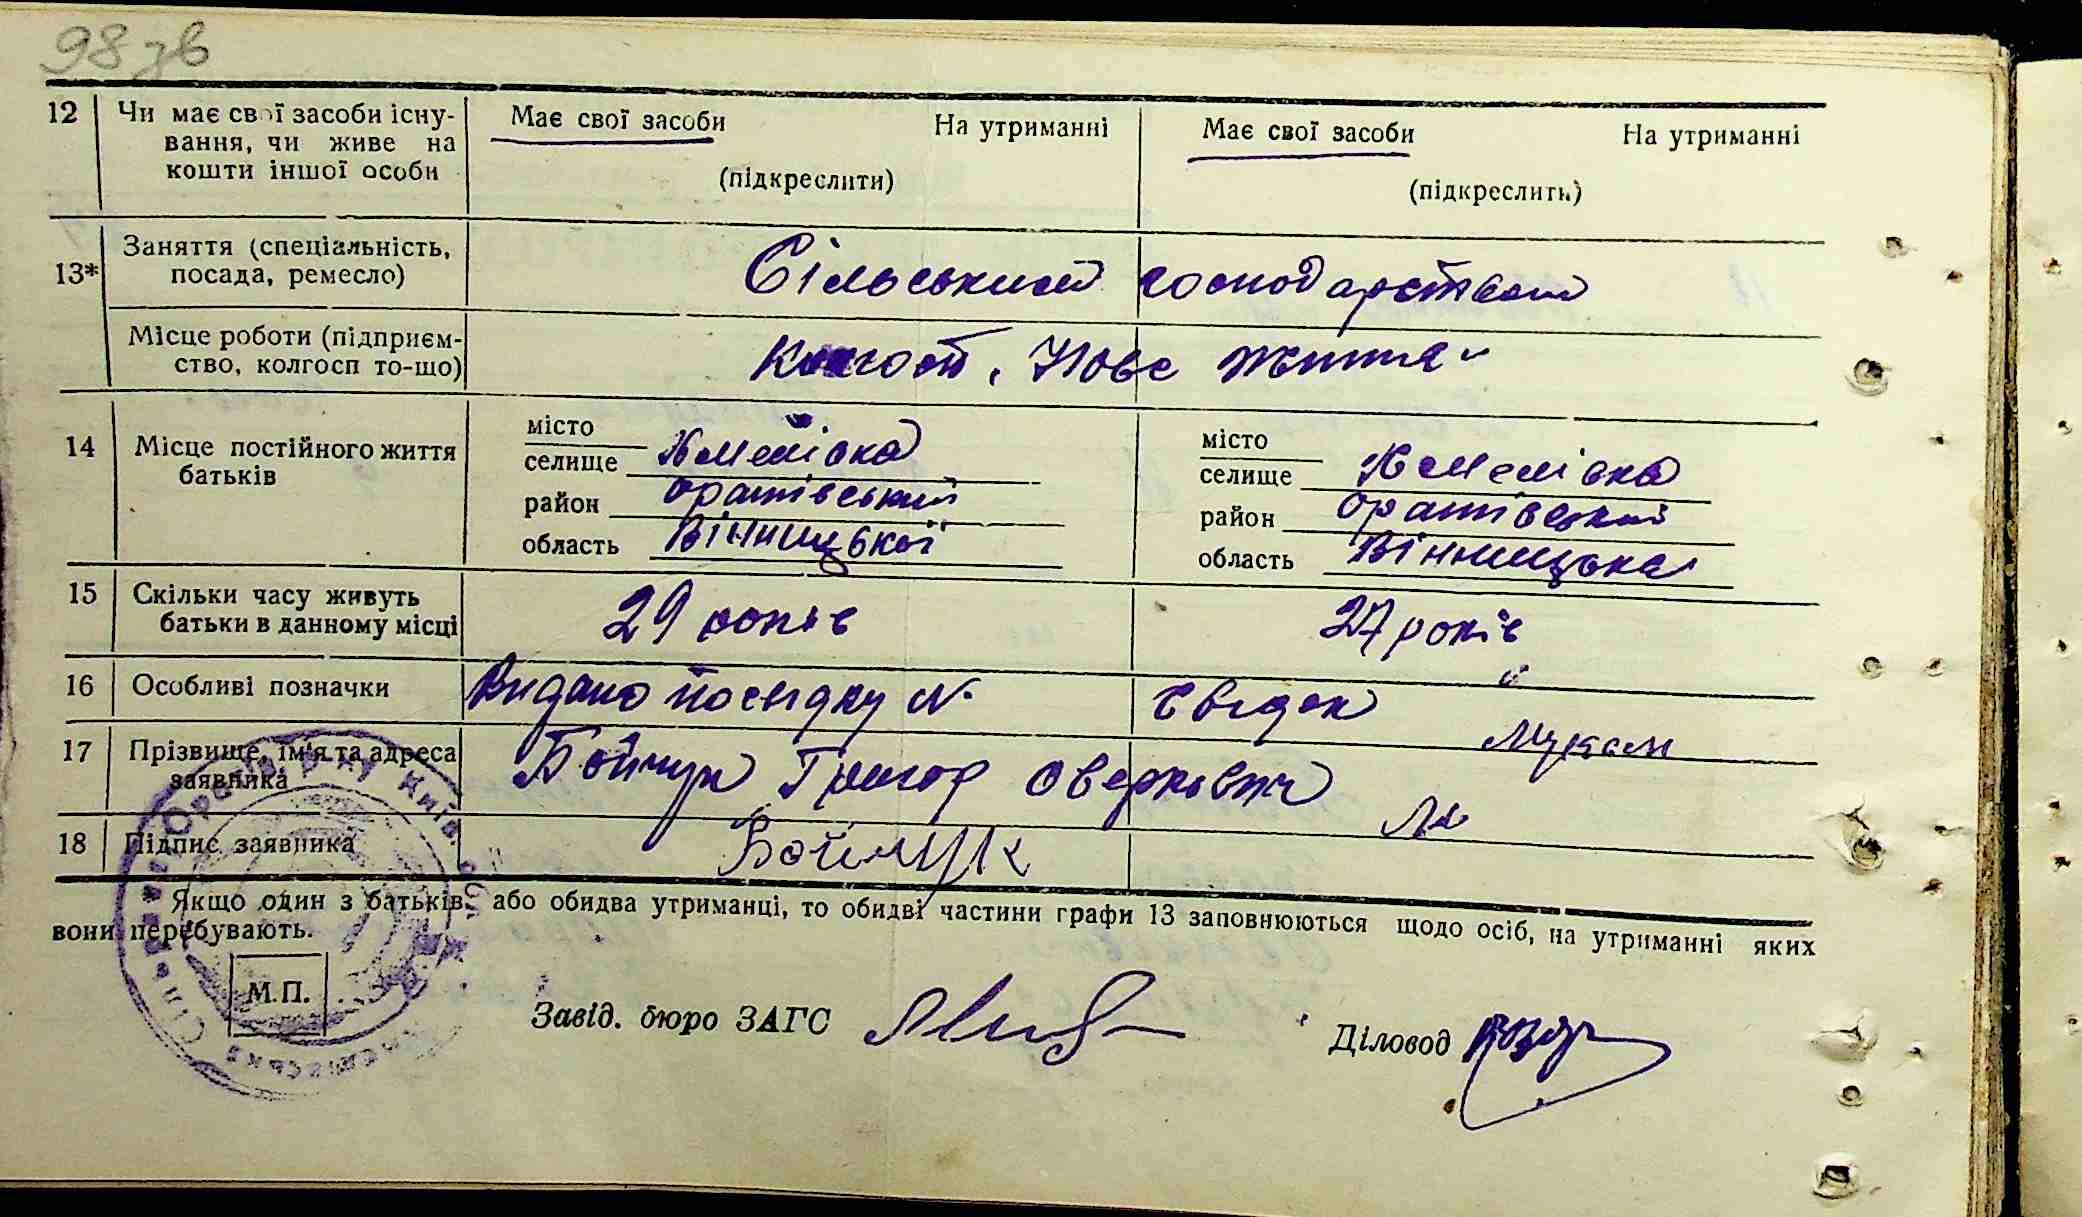 98 зв
12 Чи має свої засоби існу-
вання, чи живе на
кошти іншої особи
Має свої засоби На утриманні
(підкреслити)
Має свої засоби На утриманні
(підкреслить)
13* Заняття (спеціальність,
посада, ремесло)
Сільським господарством
Місце роботи (підприєм-
ство, колгосп то-що)
Колгосп „Нове життя"
14 Місце постійного життя
батьків
місто
селище Кмелівка
район Оратівський
область Вінницької
місто
селище Кмелівка
район Оратівський
область Вінницька
15 Скільки часу живуть
батьки в данному місці
29 років 27 років
16 Особливі позначки
Видано посвідку № свідок
17 Прізвище, ім'я та адреса
заявника
Бойчук Григор Оверкович
18 Підпис заявника
Бойчук
Якщо один з батьків, або обидва утриманці, то обидві частини графи 13 заповнюються щодо осіб, на утриманні яких
вони перебувають.
М.П.
Завід. бюро ЗАГС
Діловод